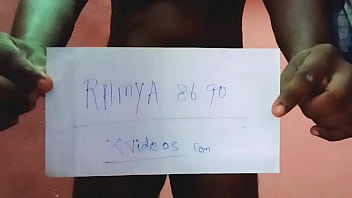 RMMYA 86 90
XVideos com